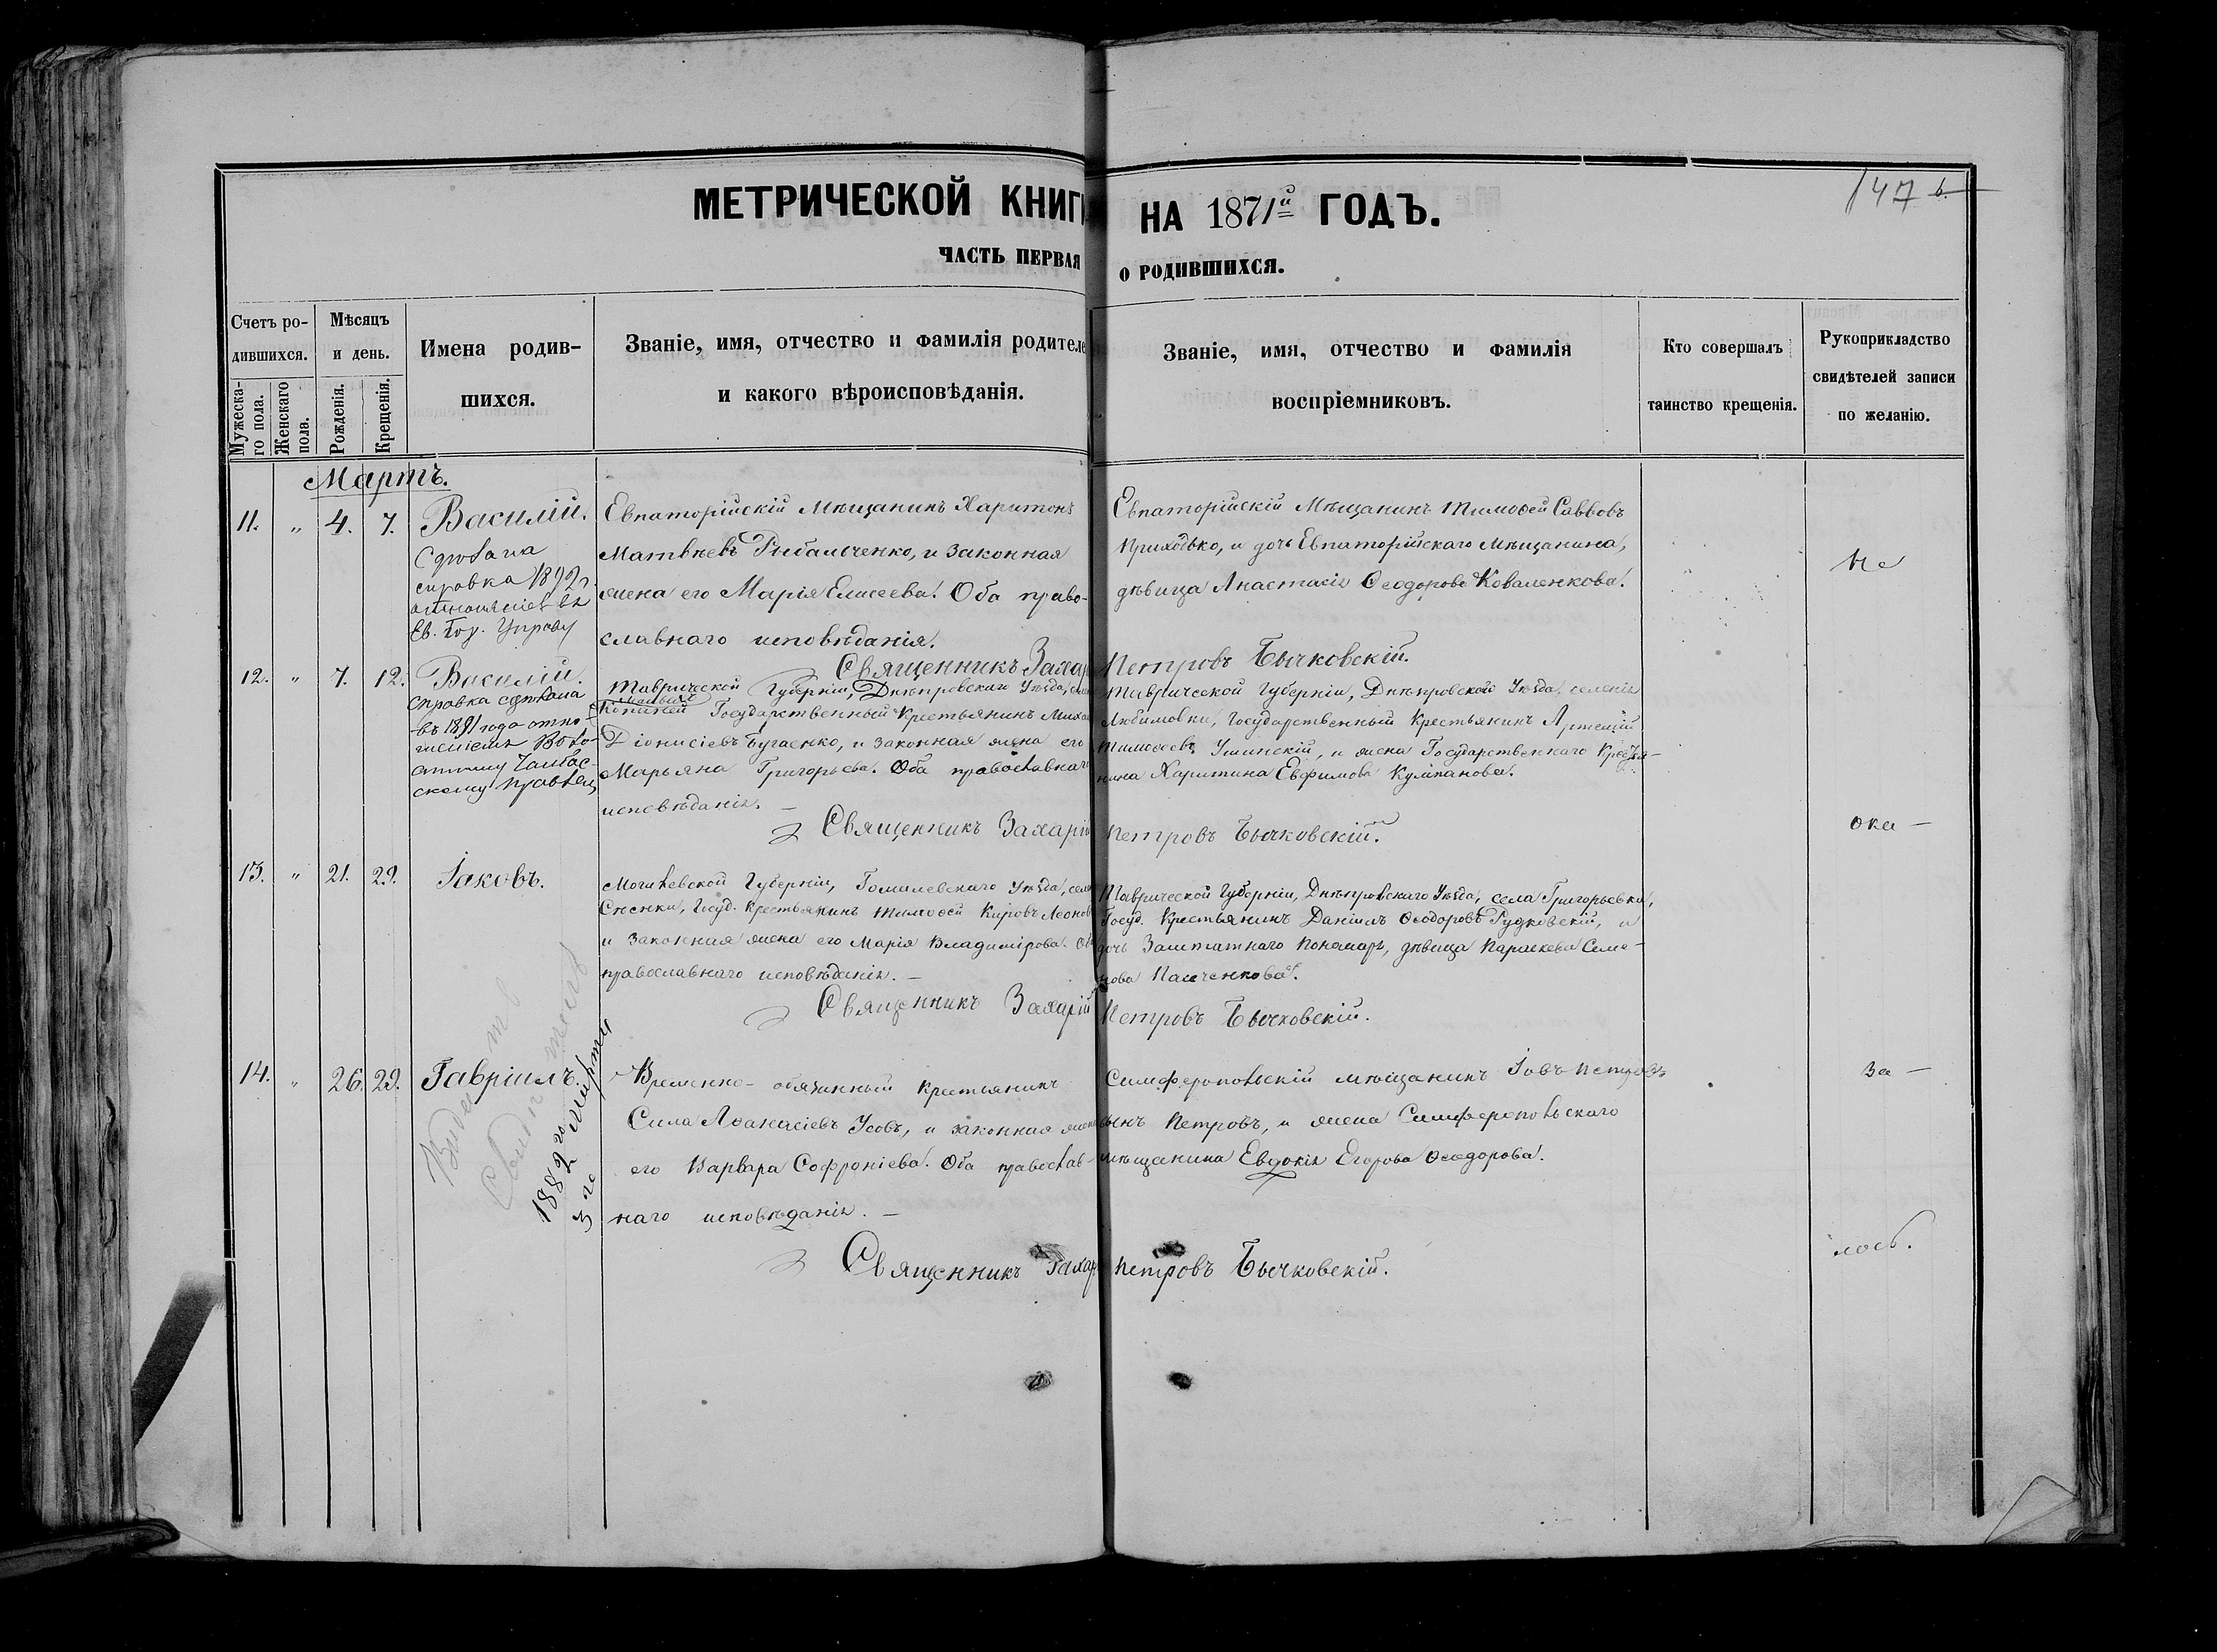 147
МЕТРИЧЕСКОЙ КНИГИ НА 1871й ГОДЪ.
ЧАСТЬ ПЕРВАЯ О РОДИВШИХСЯ.
Счетъ ро-
дившихся.
Мужеска-
го пола.
Женскаго
пола.
Мѣсяцъ
и день.
Рожденія.
Крещенія.
Имена родив-
шихся.
Званіе, имя, отчество и фамилія родителе
и какого вѣроисповѣданія.
Званіе, имя, отчество и фамилія
воспріемниковъ.
Кто совершалъ
таинство крещенія.
Рукоприкладство
свидѣтелей записи
по желанію.
Мартъ.
11. " 4. 7. Василій.
Сдѣлана
справка 1892 г.
отношеніе въ
Ев. Гор. Управу
Евпаторійскій Мѣщанинъ Харитонъ
Матвѣевъ Рыбальченко, и законная
жена его Марія Елисеева. Оба право-
славнаго исповѣданія.
Евпаторійскій Мѣщанинъ Тимоѳей Саввовъ
Приходько, и дочь Евпаторійскаго Мѣщанина,
дѣвица Анастасія Ѳеодорова Коваленкова.
Не
Священникъ Захар Петровъ Бычковскій.
12. " 7. 12. Василій.
справка сдѣлана
въ 1891 года отно-
шеніемъ Воло-
стному
скому Правлен
Таврической Губерніи, Днѣпровскаго Уѣзда, сел
Копаней Государственный Крестьянинъ Миха
Діонисіевъ Бугаенко, и законная жена его
Марьяна Григорьева. Оба православнаго
исповѣданія. —
Таврической Губерніи, Днѣпровскаго Уѣзда, селенія
Любимовки, Государственный Крестьянинъ Артемій
Тимоѳеевъ Ушинскій, и жена Государственнаго Крестья-
нина Харитина Евфимова Кулпанова.
ока —
Священникъ Захарій Петровъ Бычковскій.
13. " 21. 29. Іаковъ.
Могилевской Губерніи, Гомилевскаго Уѣзда, сел
Госуд. Крестьянинъ Тимоѳей Кировъ Леонов
и законная жена его Марія Владимірова. Об
православнаго исповѣданія. —
Таврической Губерніи, Днѣпровскаго Уѣзда, села Григорьевки,
Госуд. Крестьянинъ Даніилъ Ѳеодоровъ Рудковскій, и
дочь Заштатнаго Пономаря, дѣвица Параскева Семе-
нова Панченкова.
Священникъ Захарій Петровъ Бычковскій.
14. " 26. 29. Гавріилъ.
1882 го
3 го Марта
Временно-обязанный Крестьянинъ
Сила Аѳанасіевъ Усовъ, и законная жена
его Варвара Софроніева. Оба православ-
наго исповѣданія. —
Симферопольскій мѣщанинъ Іовъ Петровъ
сынъ Петровъ, и жена Симферопольскаго
мѣщанина Евдокія Егорова Ѳеодорова.
за —
лось.
Священникъ Захар Петровъ Бычковскій.